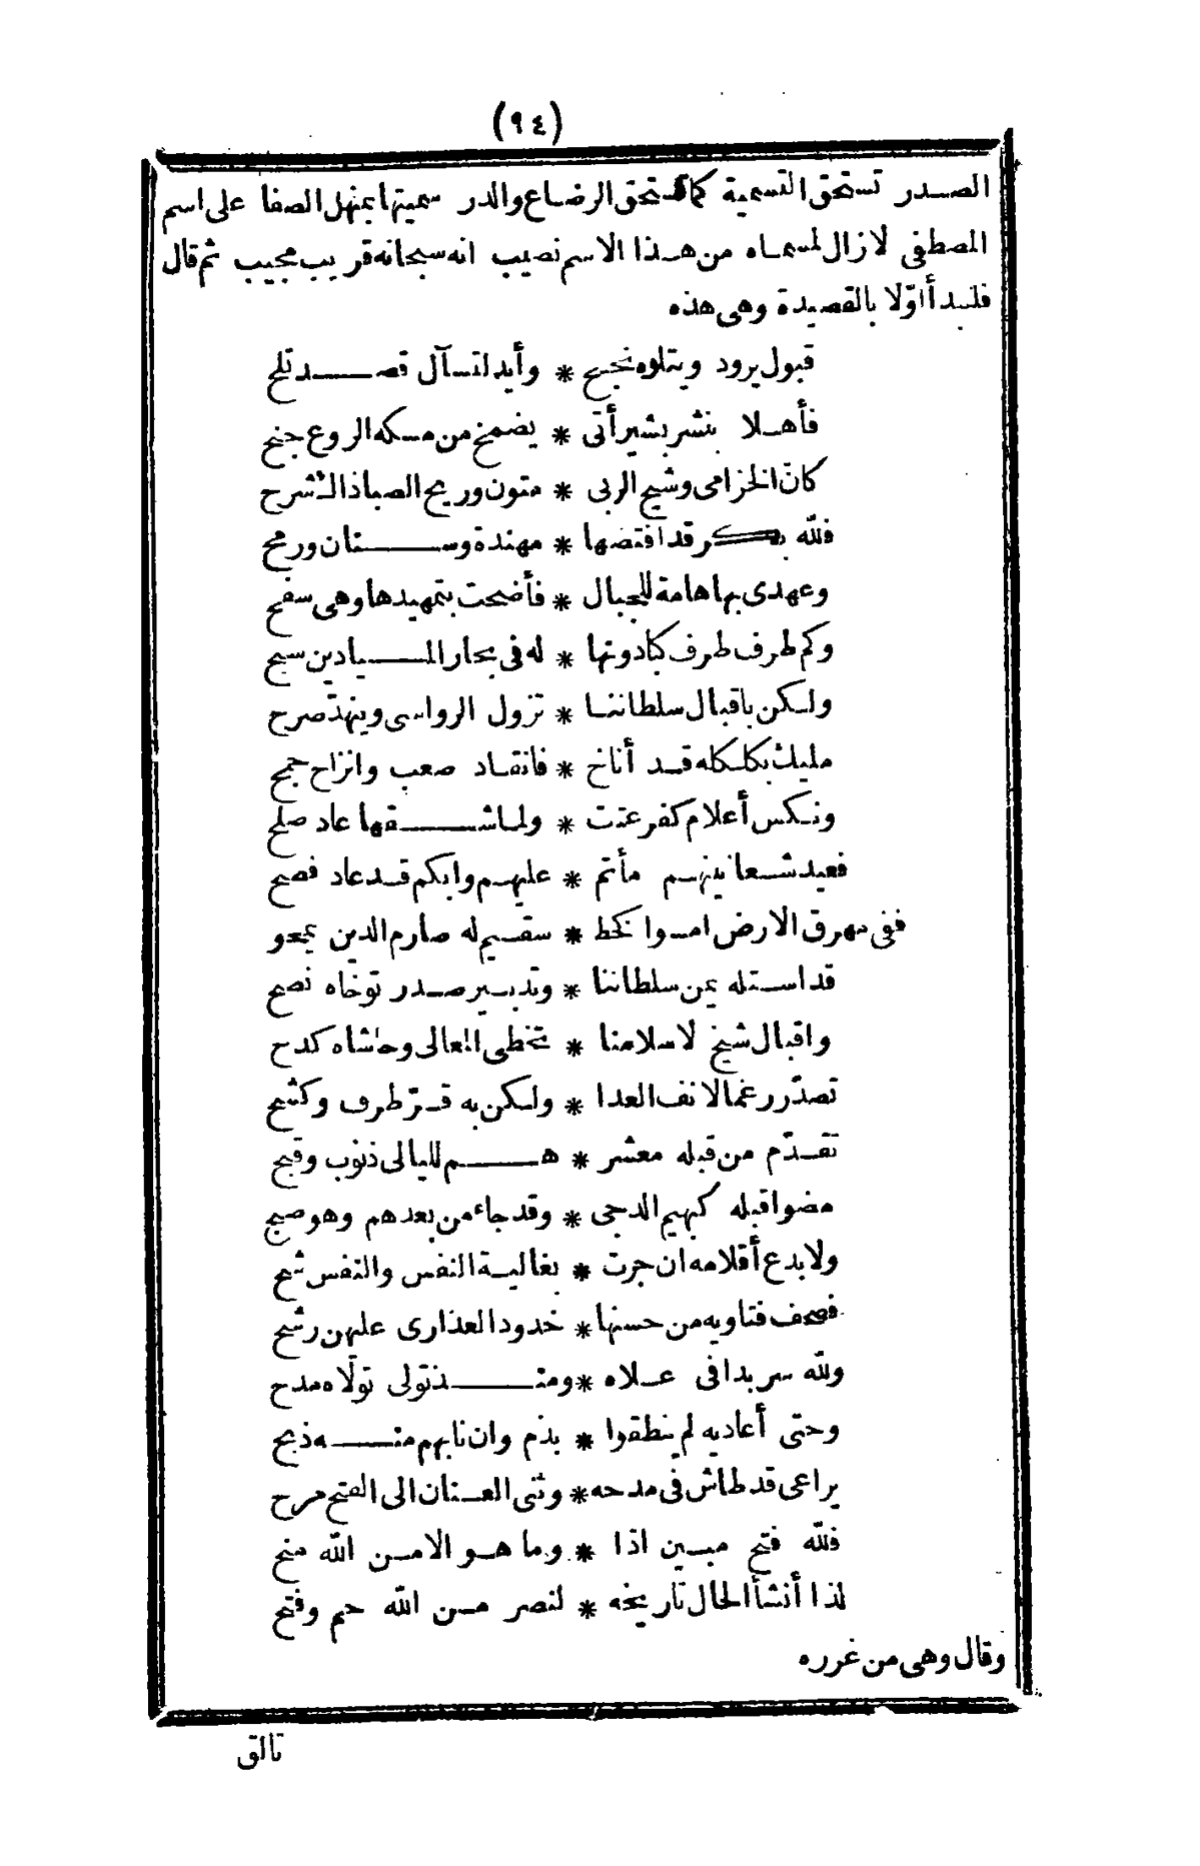 (٩٤)
الصدر تستحق التسمية كما تستحق الرضاع والدر سميتها بمنهل الصفا على اسم
المصطفى لازال لمسماه من هذا الاسم نصيب انه سبحانه قريب مجيب ثم قال
فلنبدأ اوّلا بالقصيدة وهى هذه
قبول يرود ويتلوه نجح * وأيد لتسآل قصد تلح
فأهلا بنشر بشير أتى * يضمخ من مسكه الروع جنح
كانّ الخزامى وشيح الربى * متون وريح الصبا ذا الشرح
فلله بكر قد افتضها * مهندة وسنان ورمح
وعهدى بها هامة للجبال * فأضحت بتمهيدها وهى سفح
وكم طرف طرف كبا دونها * له فى بحار الميادين سبح
ولكن باقبال سلطاننا * تزول الرواسى وينهدّ صرح
مليك بكلكله قد أناخ * فانقاد صعب وانزاح جمح
ونكس أعلام كفر عتت * ولما شقها عاد صلح
فعيد شعانينهم مأتم * عليهم وابكم قد عاد فصح
ففى مهرق الارض امسوا كخط * سقيم له صارم الدين يمحو
قد استله يمن سلطاننا * وتدبير صدر توخاه نصح
واقبال شيخ لاسلامنا * تخطى المعالى وحاشاه كدح
تصدّر رغما لانف العدا * ولكن به قرّ طرف وكشح
تقدّم من قبله معشر * هم لليالى ذنوب وقبح
مضوا قبله كبهيم الدجى * وقد جاء من بعدهم وهو صبح
ولا بدع أقلامه ان جرت * بغالية النفس والنفس شح
فصحف فتاويه من حسنها * خدود العذارى عليهن رشح
ولله سر بدا فى علاه * ومنذ تولى تولّاه مدح
وحتى أعاديه لم ينطقوا * بذم وان نابهم منه ذبح
يراعى قد طاش فى مدحه * وثنى العنان الى الفتح مرح
فلله فتح مبين اذا * وما هو الا من الله منح
لذا أنشأ الحال تاريخه * لنصر من الله حم وفتح
وقال وهى من غرره
تالق